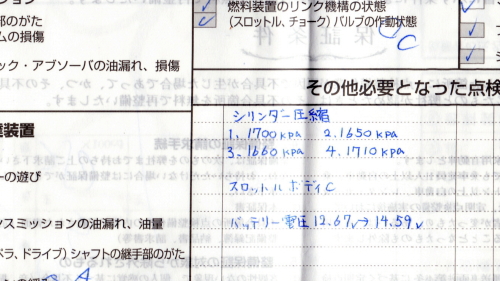 燃料装置のリンク機構の状態
(スロットル、チョーク)バルブの作動状態
C
部のがた
ムの損傷
ック・アブソーバの油漏れ、損傷
その他必要となった点検
シリンダー圧縮
1. 1700kpa 2. 1650kpa
3. 1660kpa 4. 1710kpa
装置
ーの遊び
スロットルボディC
ンスミッションの油漏れ、油量
バッテリー電圧 12.67v→14.59v
ペラ、ドライブ)シャフトの継手部のがた
A